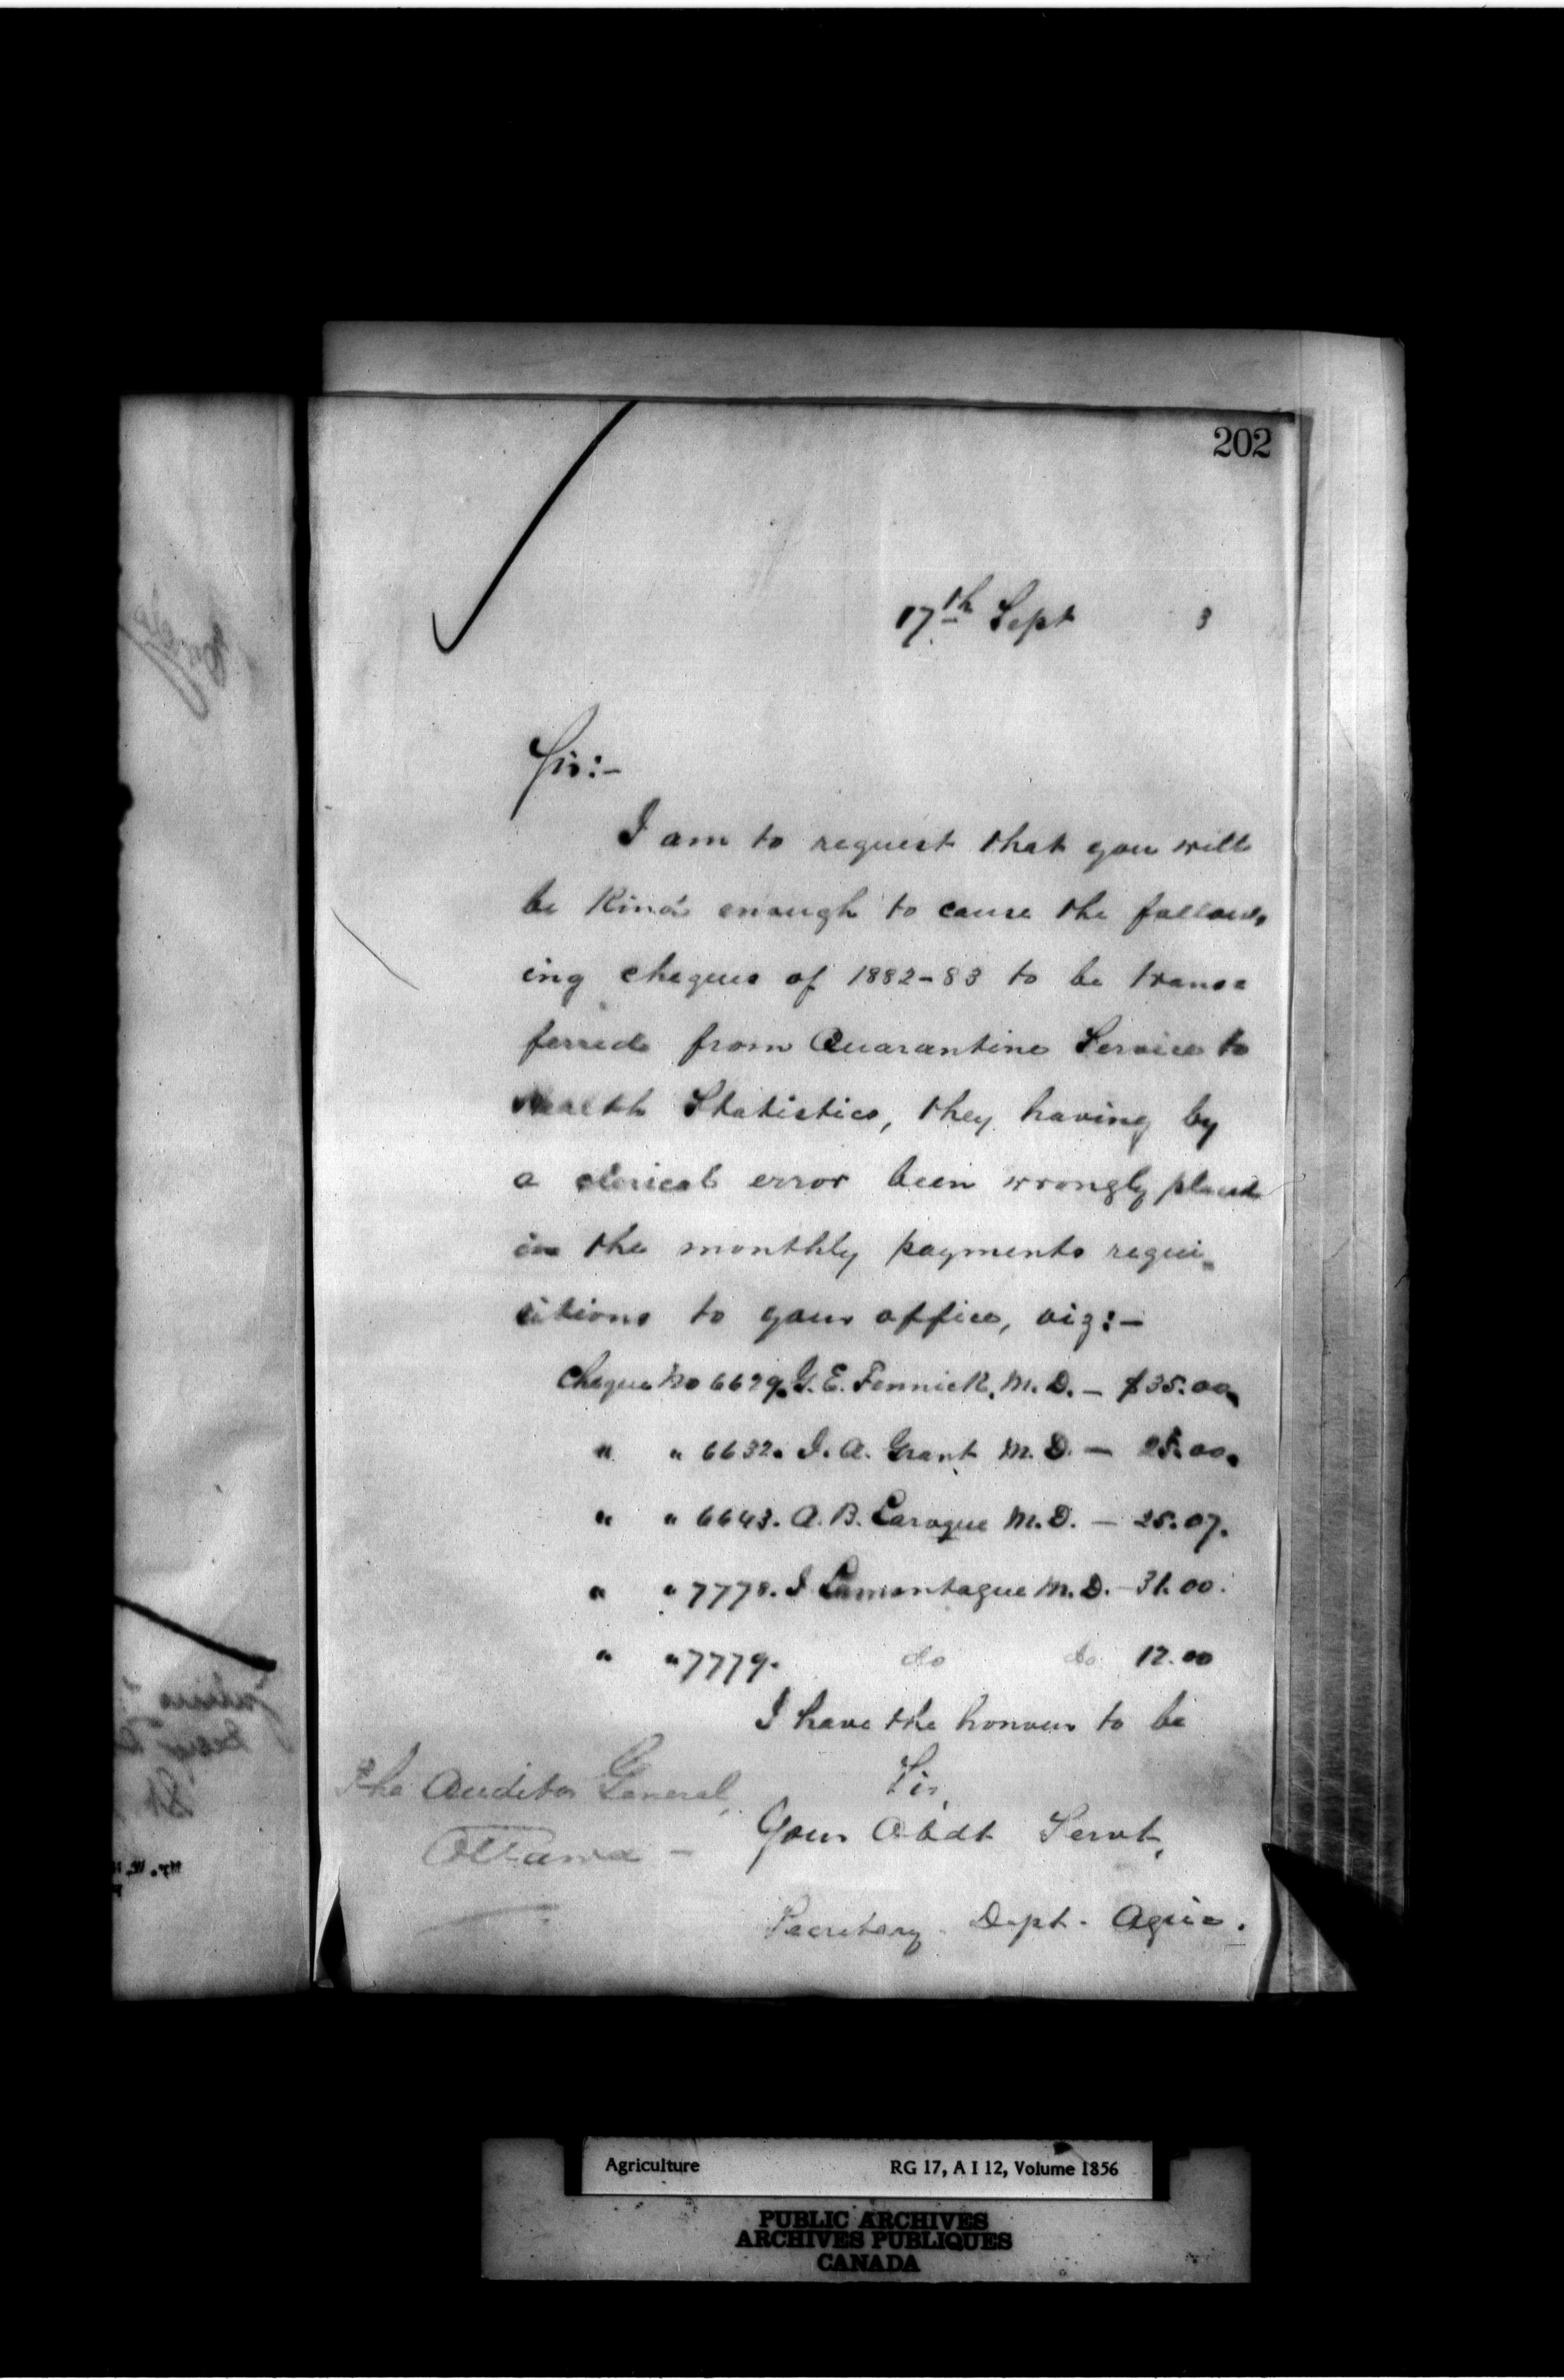 202
17th Sept 3
Sir:-
I am to request that you will
be kind enough to cause the follow-
ing cheques of 1882-83 to be trans-
ferred from Quarantine Service to
Health Statistics, they having by
a clerical error been wrongly placed
in the monthly payments requi-
sitions to your office, viz:-
Cheque No 6629. G. E. Fennick, M. D. - $35.00
" " 6632. J. A. Grant M. D. - 25.00.
" " 6643. A. B. Laroque M. D. - 25.07.
" " 7778. J Lamontague M. D. - 31.00.
" " 7779. do do 12.00
I have the honour to be
Sir,
Your Obdt Servt,
The Auditor General,
Ottawa -
Secretary. Dept. Agric.
Agriculture RG 17, A I 12, Volume 1856
PUBLIC ARCHIVES
ARCHIVES PUBLIQUES
CANADA